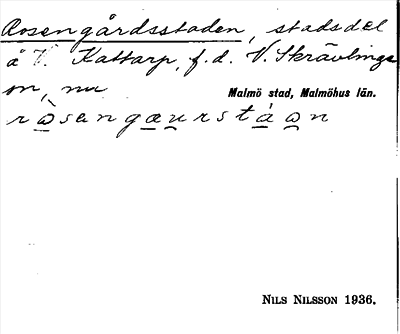 Rosengårdsstaden, stadsdel
å V. Kattarp, f.d. V. Skrävlinge
sn, nu Malmö stad, Malmöhus län.
NILS NILSSON 1936.